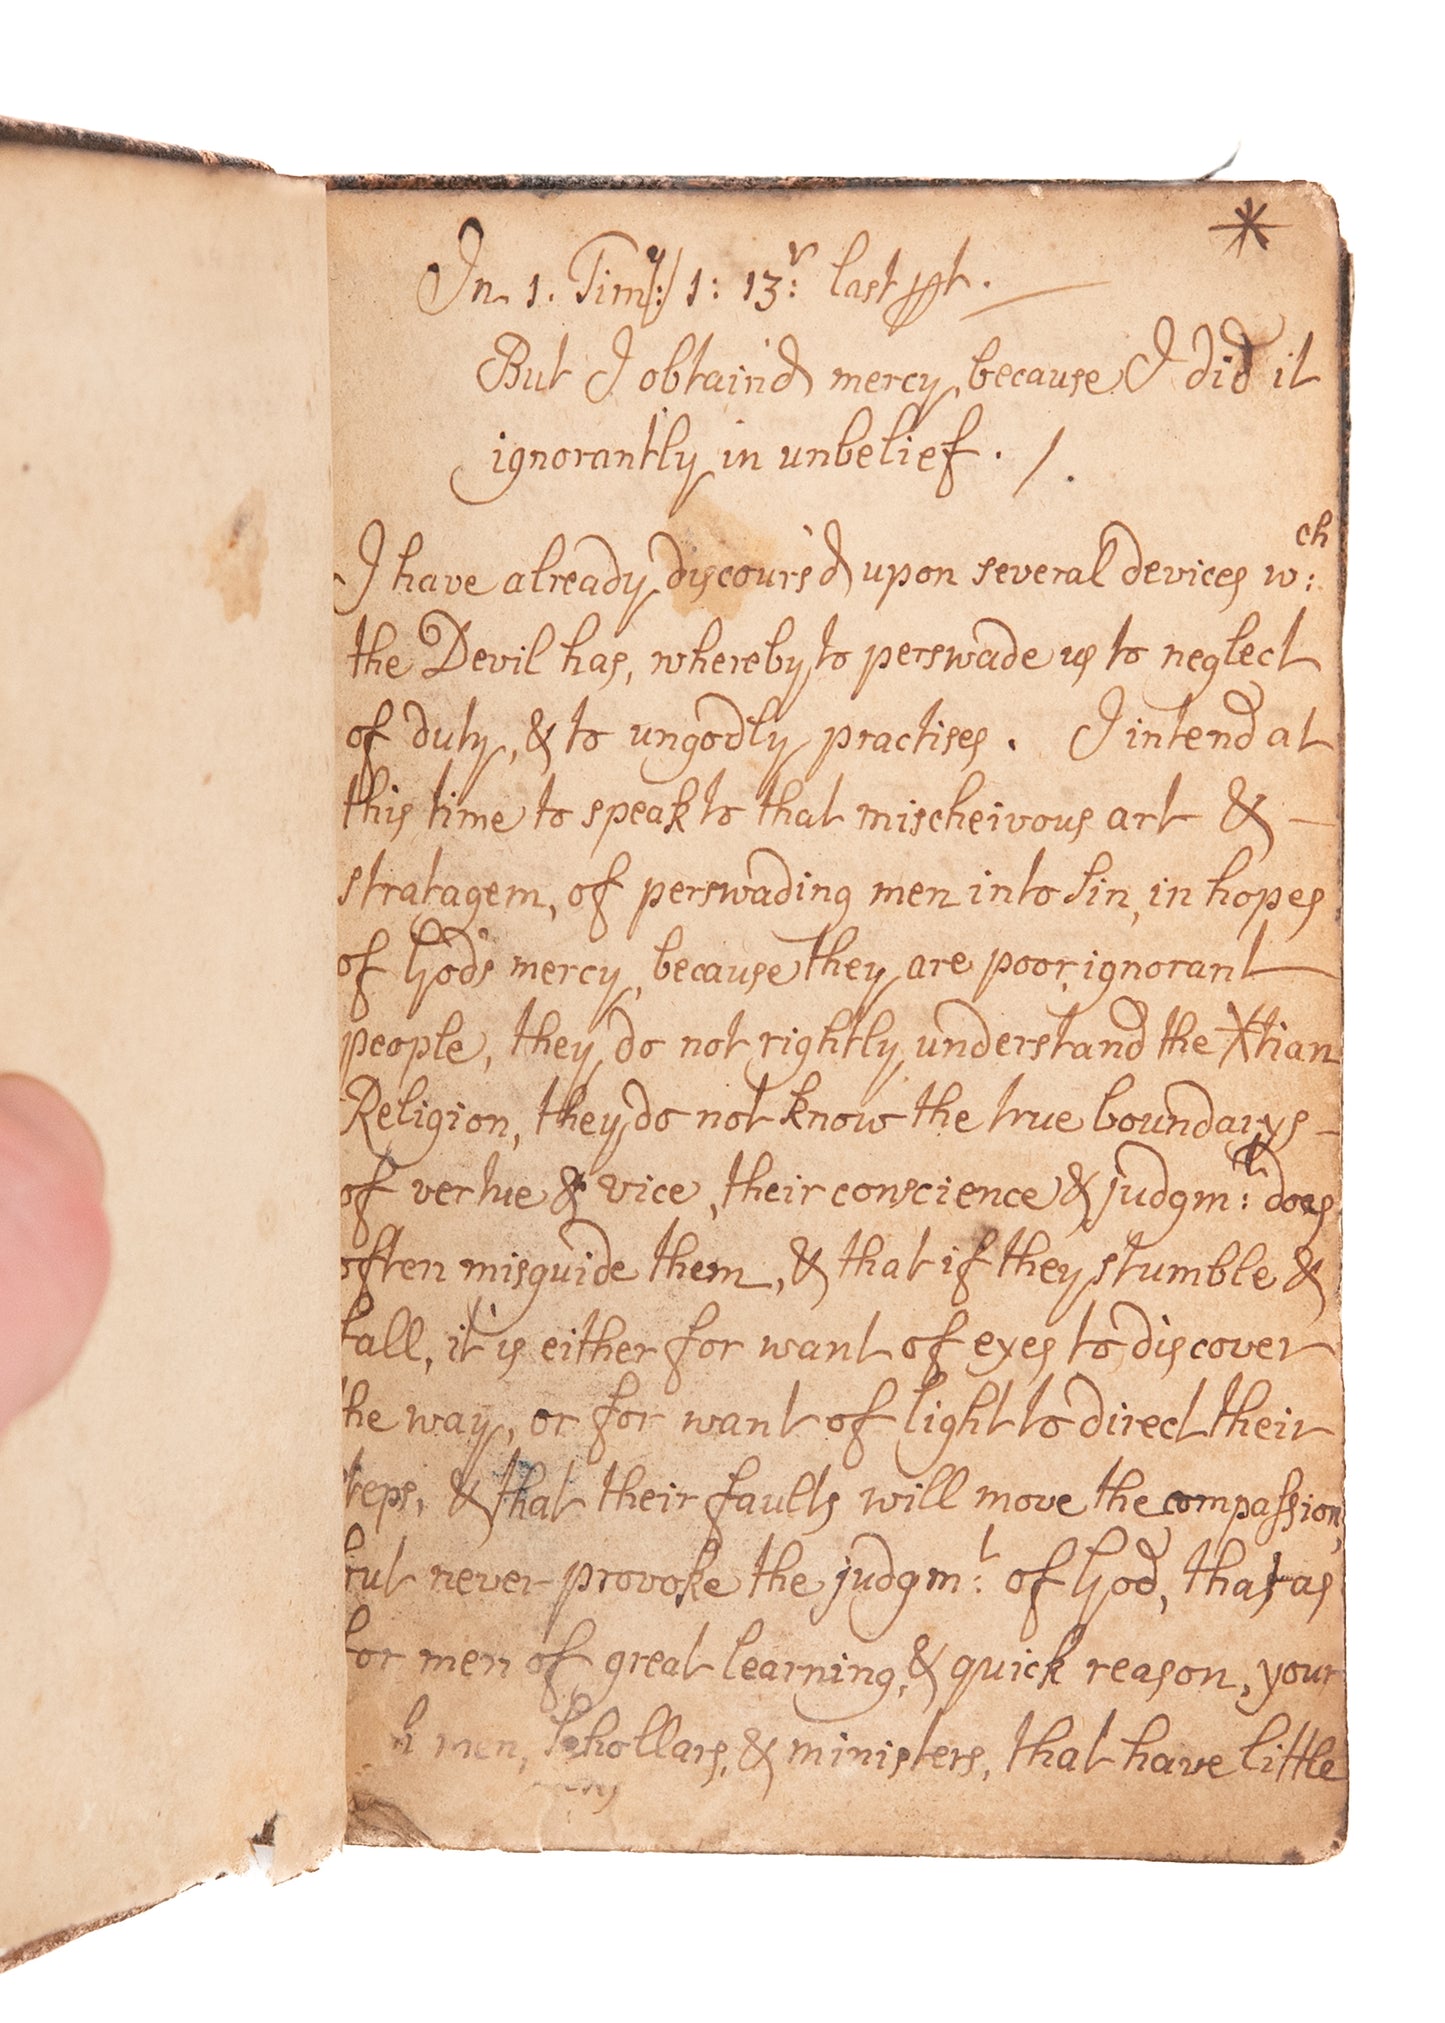 *
In 1. Tim:y/ 1: 13:v last ppt.
But I obtain'd mercy, because I did it
ignorantly in unbelief. /.
I have already discours'd upon several devices w:ch
the Devil has, whereby to perswade us to neglect
of duty, & to ungodly practises. I intend at
this time to speak to that mischeivous art & –
stratagem, of perswading men into sin, in hopes
of God's mercy, because they are poor, ignorant
people, they do not rightly understand the Xtian
Religion, they do not know the true boundarys –
of vertue & vice, their conscience & judgm:t does
often misguide them, & that if they stumble &
fall, it is either for want of eyes to discover
the way, or for want of light to direct their
steps, & that their faults will move the compassion,
but never provoke the judgm:t of God, that as
for men of great learning, & quick reason, your
men, Schollars, & ministers, that have little